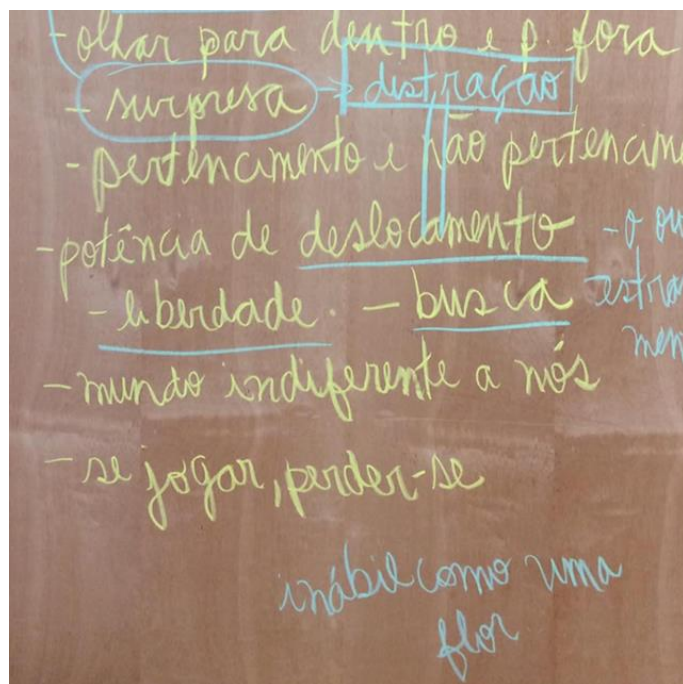 - olhar para dentro e p. fora
- surpresa → distração
- pertencimento e não pertencime
- potência de deslocamento - o ou
- liberdade. - busca estra
men
- mundo indiferente a nós
- se jogar, perder-se
inábil como uma
flor